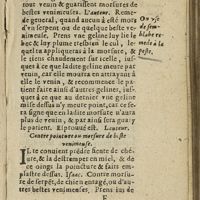 tout venin & guarissent morsures de
bestes venimeuses. L'auteur. Reme-
de general, quand aucun à esté mors
d'un serpent ou de quelque beste ve-
nimeuse. Prens une geline luy lie le
bec & luy plume tresbien le cul, le-
quel tu appliqueras à la morsure, &
le tiens chaudement sur icelle, jusqu'à
ce que ladite geline meure par
venin, car elle mourra en attrayant à
elle le venin & non autrement, ce
peut faire ainsi d'autres gelines, jusqu'à
ce que ladite derniere geline
mise dessus n'y meure point, car ce se-
ra signe que en la morsure n'y aura
plus de venin, & par ainsi sera guary
le patient. Et prouvé est. L'auteur.
Contre pointure ou morsure de beste
venimeuse.
IL te convient prédre fiente de che-
vre, & la destremper en miel, & de
ce oings la pointure & faits em-
plastre dessus. Isaac. Contre morsure
de serpét, de chien enragé, ou d'au-
tres bestes venimeuses. Prens jus de
F
On use
de sem-
blable re-
mede à la
peste.